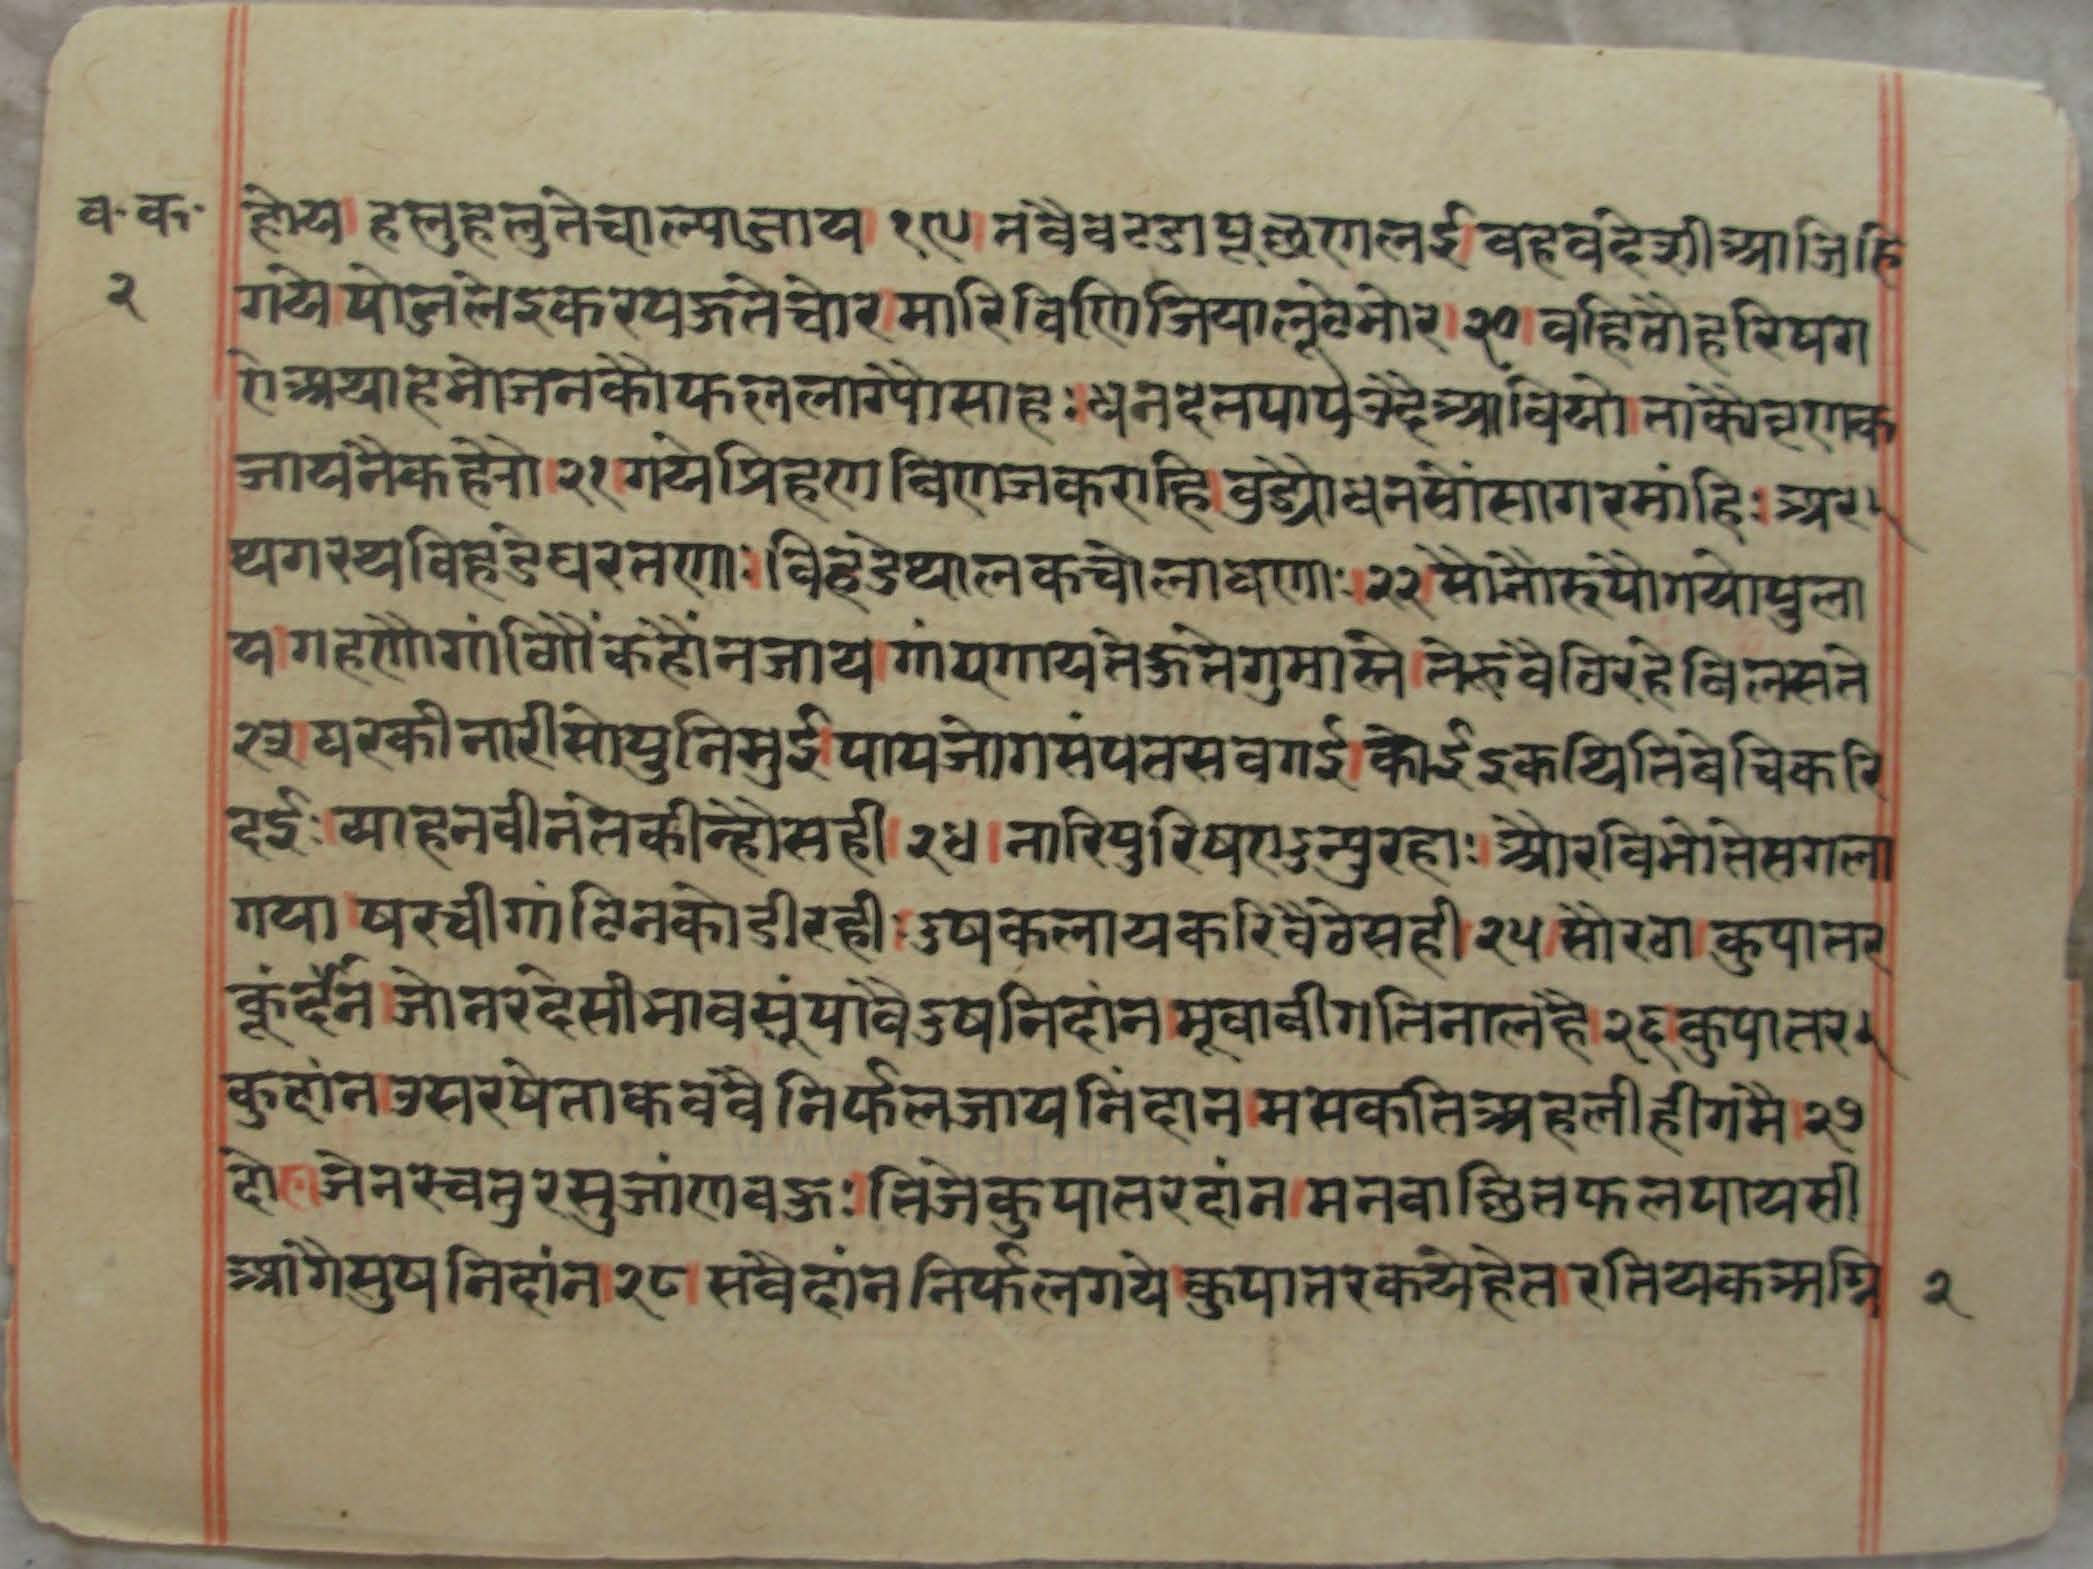 व॰ क॰ होय। हलुहलुतेचाल्याजाय। १९। नंवैवटडापूछणलई। वहवदेशीआजिहि
२ गये। पोजुलेइकरयऊतेचोर। मारिविणिजियालूटेमोर। २०। वहितौहरिषग
ऐअयाहमोजनकौफललागेपौसाह:। धनदलपापेउदैआवियो। ताकौदृणक
जायनैकहैनो। २१। गयेप्रिहणविणजकराहि। वुडोधनसोंसागरमांहि:। अर
थगरथविहडेघरतणा:। विहडेथालकचोलाघणा:। २२। सोनौरुपौगयोपुला
य। गहणौगांविगौंकहौंनजाय। गांयगायतेऊतेगुमास्ते। तेरुंवैविरहेविलसते
२३। घरकीनारीसोपुनिमुई। पायजोगसंपतसवगई। कोईइकथितिबेचिकरि
दई:। याहनवीनंतेकीन्हौसही। २४। नारिपुरिषएउन्पुरहा:। औरविभोतेसगला
गया। षरचीगांठिनकोडीरही:। उषकलायकरिवैठेसही। २५। सोरठा। कुपातर
कूंदैन। जोनरदेसीभावसूं। पावैउषनिदांन। मूवावीगतिनालहै। २६। कुपातर
कुदांन। उसरषेताकववै। निर्फलजायनिंदान। मसकतिअहलीहीगंमै। २७
दो॰। जेनरचतुरसुजांणवऊ:। तिजेकुपातरदांन। मनवाछितफलपायसी
आगैसुषनिदांन। २८। सवैदांननिर्फलगये। कुपातरकयेहेत। रतियकअग्नि २